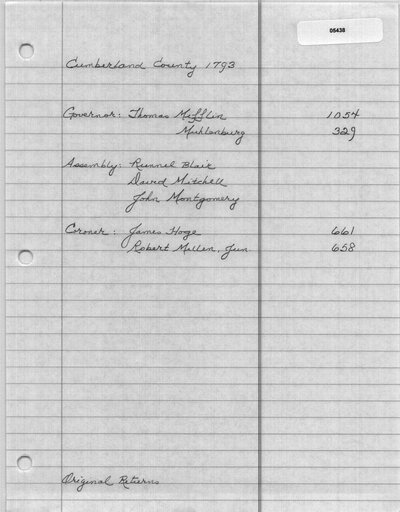 05438
Cumberland County 1793
Governor: Thomas Mifflin 1054
Muhlenburg 329
Assembly: Runnel Blair
David Mitchell
John Montgomery
Coroner: James Hoge 661
Robert Mullen, Jun 658
Original Returns